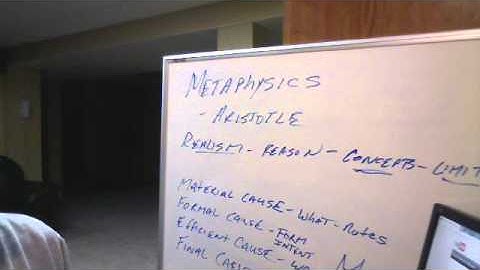 METAPHYSICS
- ARISTOTLE
REALISM - REASON - CONCEPTS - LIMIT
MATERIAL CAUSE - WHAT - NOTES
FORMAL CAUSE - FORM
INTENT
EFFICIENT CAUSE -
FINAL